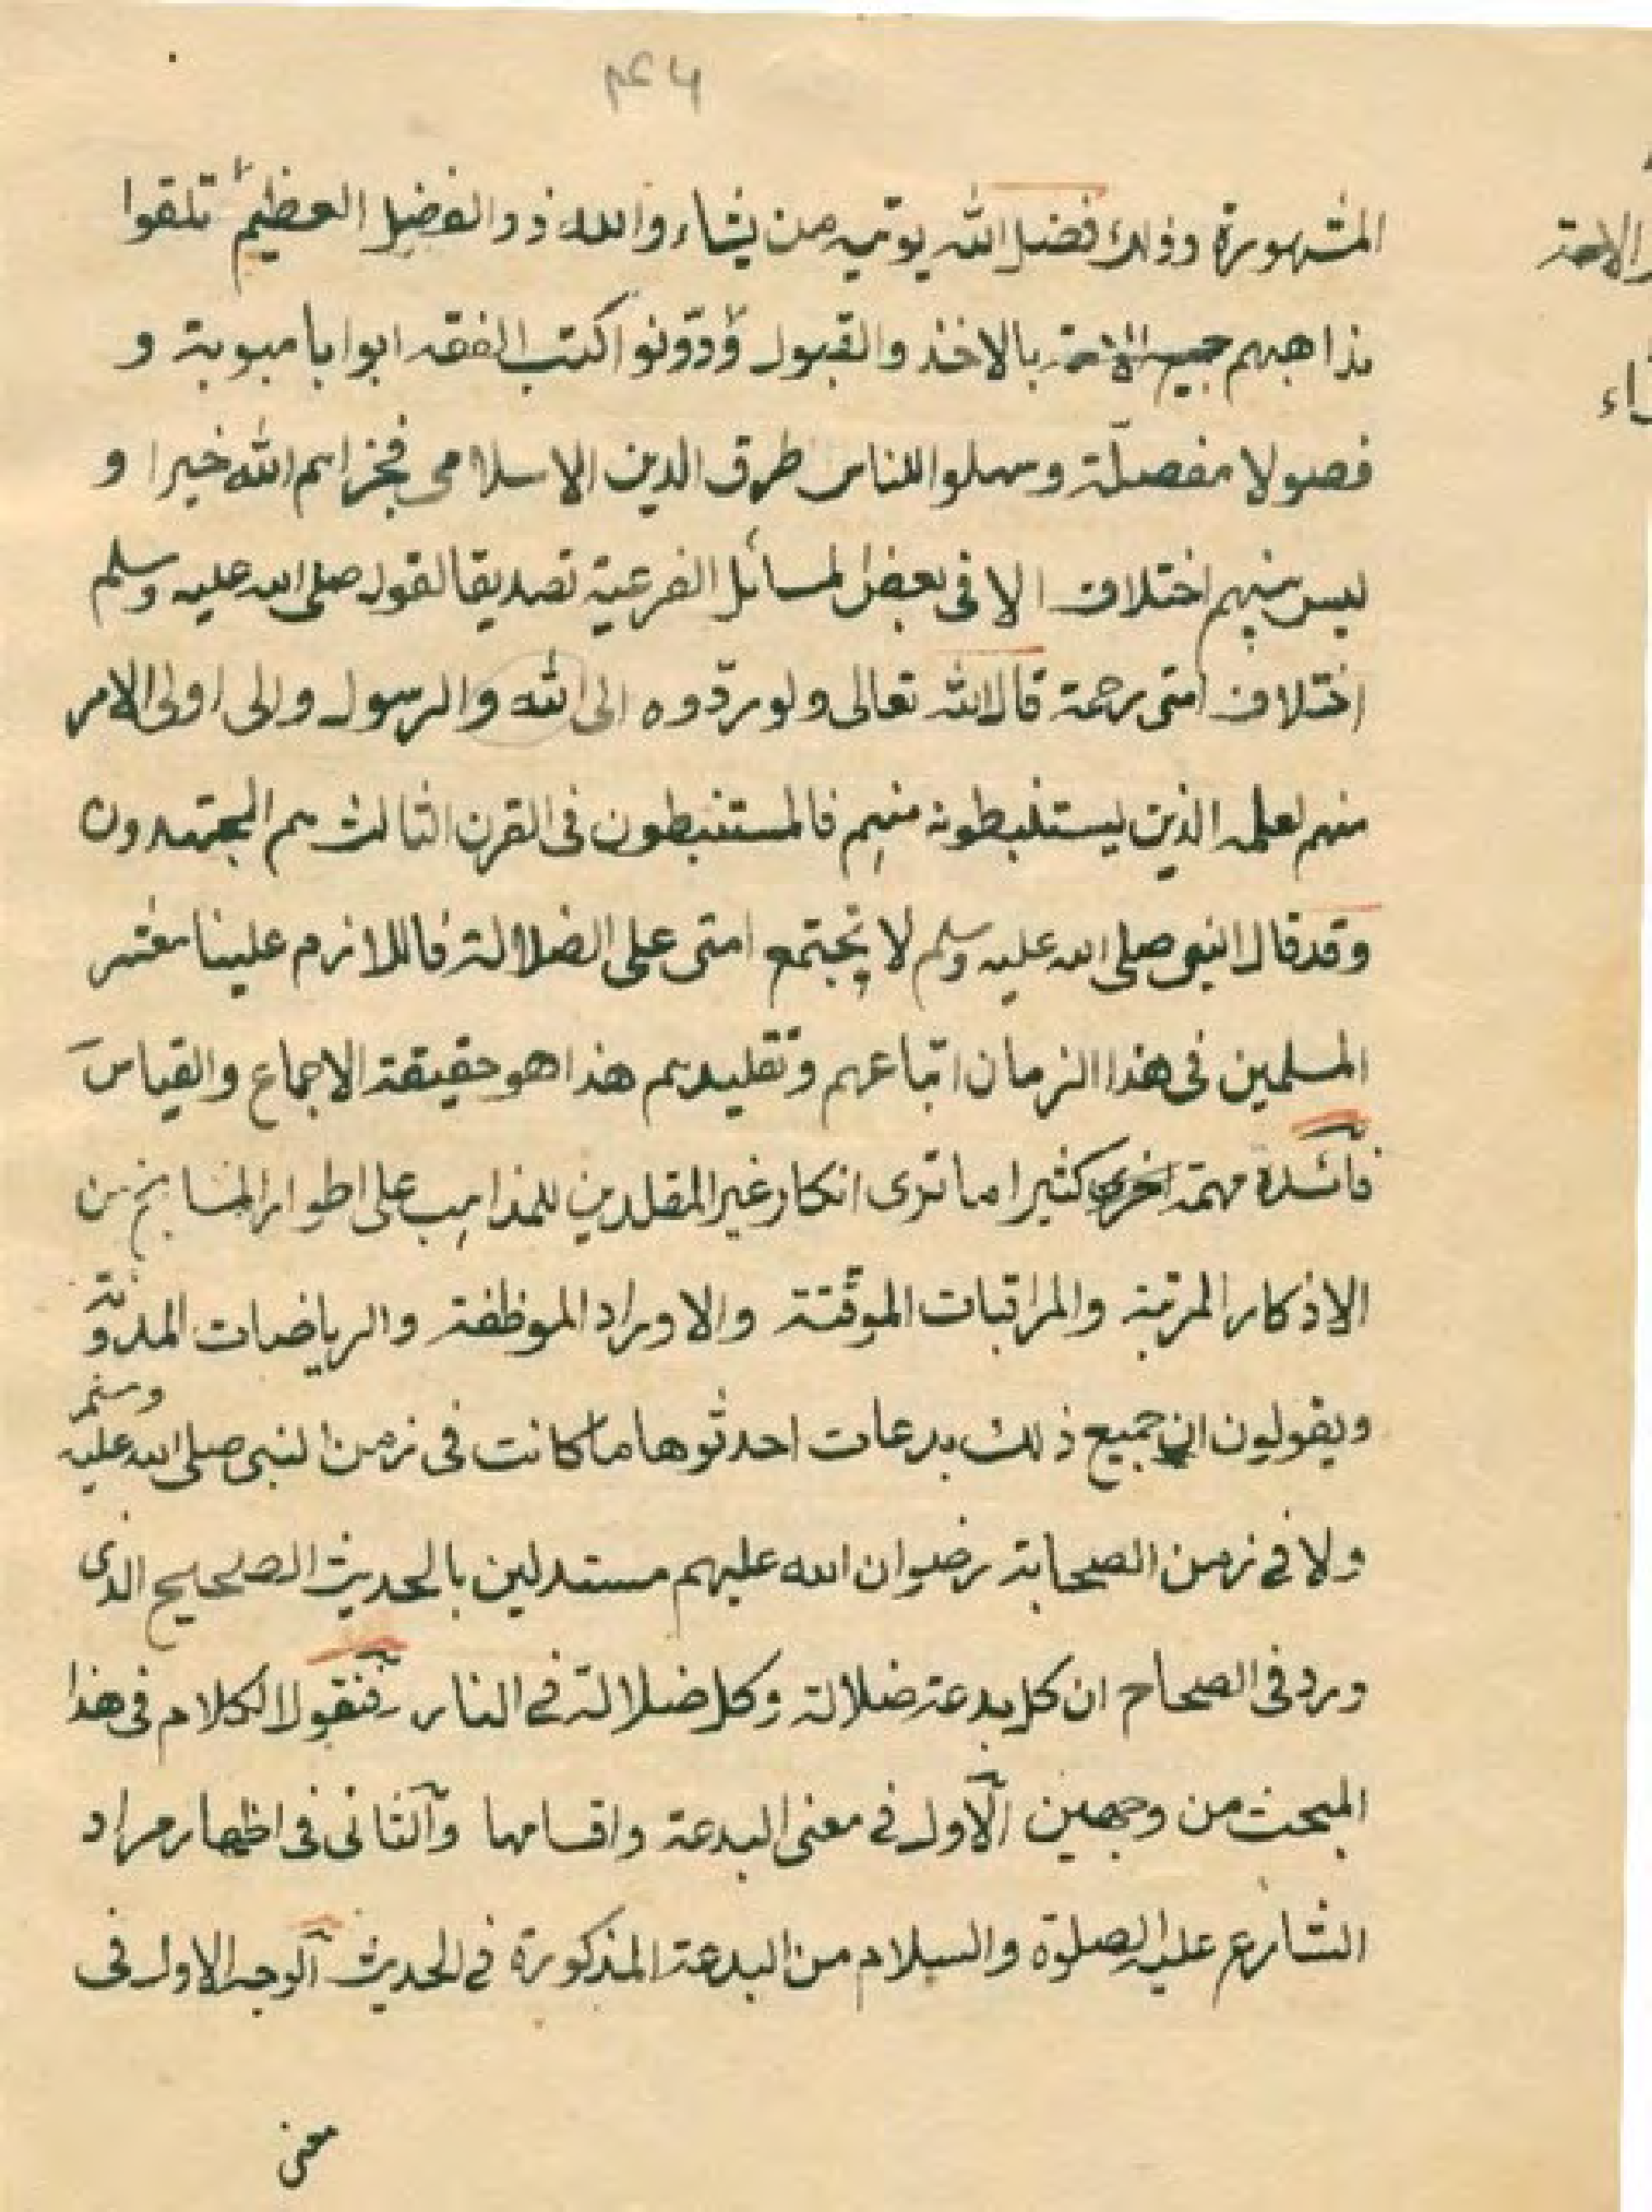 المشهورة وذلك فضل الله يوتيه من يشاء والله ذو الفضل العظيم تلقوا
مذاهبهم جميع الامة بالاخذ والقبول ودوّنوا كتب الفقه ابوابا مبوبة و
فصولا مفصلّة وسهلوا للناس طرق الدين الاسلامى فجزاهم الله خيرا و
ليس بينهم اختلاف الا فى بعض المسائل الفرعية تصديقا لقول صلى الله عليه وسلم
اختلاف امتى رحمة قال الله تعالى ولو ردّوه الى الله والرسول والى اولى الامر
منهم لعلمه الذين يستنبطونه منهم فالمستنبطون فى القرن الثالث هم المجتهدون
وقد قال النبى صلى الله عليه وسلم لا تجتمع امتى على الضلالة فاللازم علينا معشر
المسلمين فى هذا الزمان اتباعهم وتقليدهم هذا هو حقيقة الاجماع والقياس
فائدة مهمة اخرى كثيرا ما ترى انكار غير المقلدين للمذاهب على اطوار المشايخ من
الاذكار المرتبة والمراقبات الموقتة والاوراد الموظفة والرياضات المدونة
ويقولون ان جميع ذلك بدعات احدثوها ما كانت فى زمن النبى صلى الله عليه وسلم
ولا فى زمن الصحابة رضوان الله عليهم مستدلين بالحديث الصحيح الذى
ورد فى الصحاح ان كل بدعة ضلالة وكل ضلالة فى النار فنقول الكلام فى هذا
المبحث من وجهين الاول فى معنى البدعة واقسامها والثانى فى اظهار مراد
الشارع عليه الصلوة والسلام من البدعة المذكورة فى الحديث الوجه الاول فى
معنى
الامة